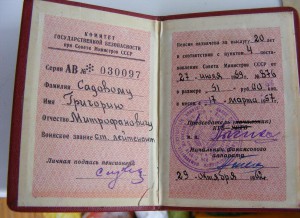 КОМИТЕТ
ГОСУДАРСТВЕННОЙ БЕЗОПАСНОСТИ
при Совете Министров СССР
Серия АВ № 030097
Фамилия Садовому
Имя Григорию
Отчество Митрофановичу
Воинское звание ст. лейтенант
Личная подпись пенсионера
Пенсия назначена за выслугу 20 лет
в соответствии с пунктом 4 поста-
новления Совета Министров СССР от
27 июля 59 г. № 876
в размере 91 руб.
с 17 марта
Председатель
Начальник финансового
аппарата
29 октября